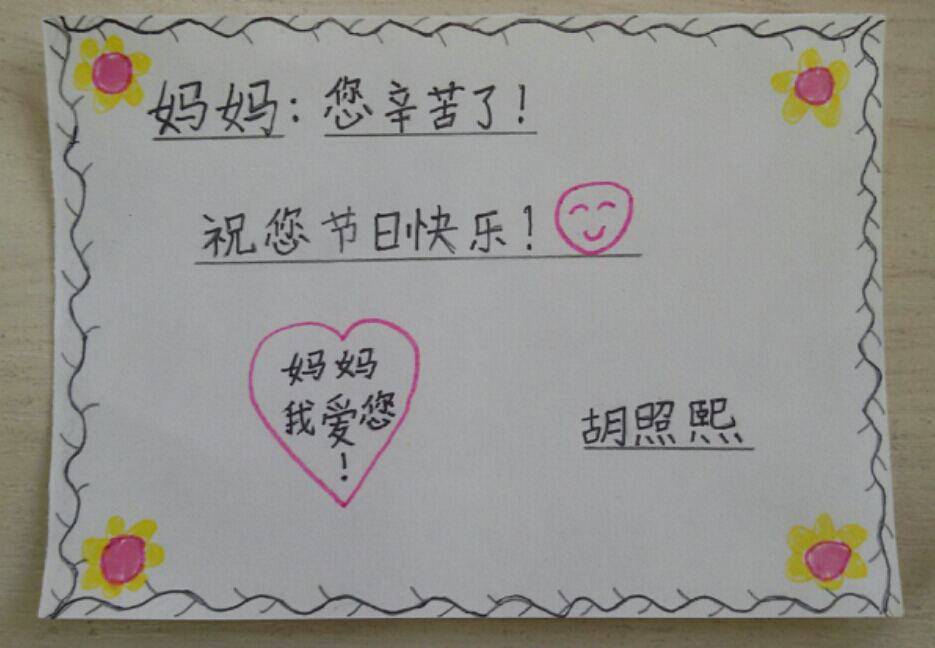 妈妈：您辛苦了！
祝您节日快乐！
妈妈
我爱您
！
胡照熙